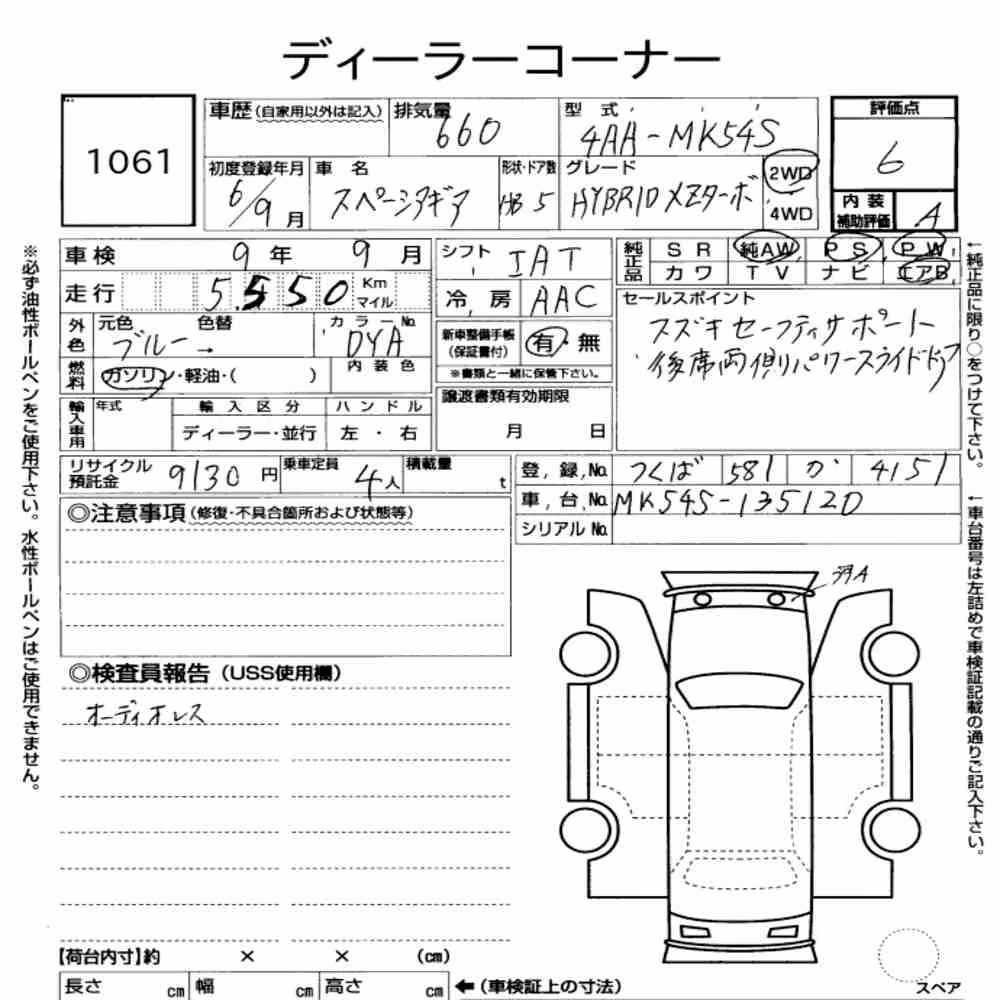 ディーラーコーナー
1061
車歴 (自家用以外は記入)
排気量 660
型式 4AA-MK54S
評価点 6
初度登録年月 6/9月
車名 スペーシアギア
形状・ドア数 HB 5
グレード HYBRID XZターボ
2WD
4WD
内装補助評価 A
車検 9年 9月
シフト IAT
純正品 SR 純AW PS PW
カワ TV ナビ エアB
走行 5,550 Km マイル
冷房 AAC
セールスポイント
スズキセーフティサポート
後席両側パワースライドドア
外色 元色 ブルー → 色替
カラーNo. DYA
新車整備手帳 (保証書付) 有・無
※書類と一緒に保管下さい。
燃料 ガソリン・軽油・( )
内装色
譲渡書類有効期限
月 日
輸入車用 年式 輸入区分 ハンドル
ディーラー・並行 左・右
リサイクル預託金 9130円
乗車定員 4人
積載量 t
登録No. つくば 581 か 4151
車台No. MK54S-135120
シリアルNo.
◎注意事項 (修復・不具合箇所および状態等)
◎検査員報告 (USS使用欄)
オーディオレス
【荷台内寸】約 × × (cm)
長さ cm 幅 cm 高さ cm
←(車検証上の寸法)
スペア
※必ず油性ボールペンをご使用下さい。水性ボールペンはご使用できません。
←純正品に限り○をつけて下さい。
←車台番号は左詰めで車検証記載の通りご記入下さい。